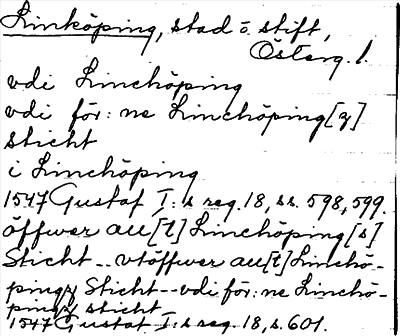 Linköping, stad o. stift,
Österg. l.
vdi Linchöping
vdi för: ne Linchöping[z]
sticht
i Linchöping
1547 Gustaf I: s reg. 18, ss. 598, 599.
öffwer all[t] Linchöping[s]
Sticht -- vtöffwer all[t] Linchö-
pings Sticht -- vdi för: ne Linchö-
pings sticht
1547 Gustaf I: s reg. 18, s. 601.